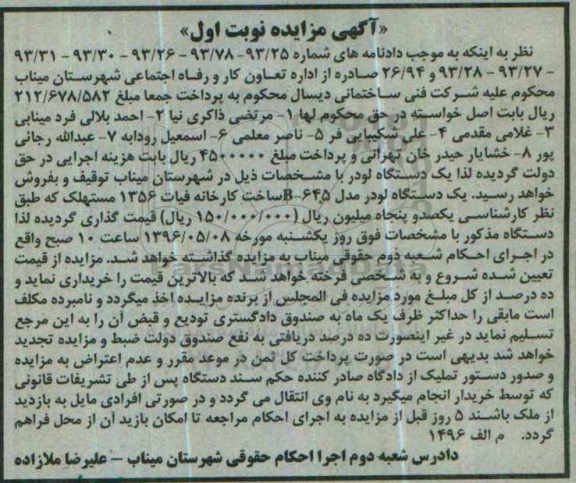 «آگهی مزایده نوبت اول»
نظر به اینکه به موجب دادنامه های شماره ۹۳/۲۵- ۹۳/۷۸ - ۹۳/۲۶ - ۹۳/۳۰ - ۹۳/۳۱
- ۹۳/۲۷ - ۹۳/۲۸ و ۲۶/۹۴ صادره از اداره تعاون کار و رفاه اجتماعی شهرستان میناب
محکوم علیه شرکت فنی ساختمانی دیسال محکوم به پرداخت جمعا مبلغ ۲۱۲/۶۷۸/۵۸۲
ریال بابت اصل خواسته در حق محکوم لها ۱- مرتضی ذاکری نیا ۲- احمد بلالی فرد مینابی
۳- غلامی مقدمی ۴- علی شکیبایی فر ۵- ناصر معلمی ۶- اسمعیل رودابه ۷- عبدالله رجائی
پور ۸- خشایار حیدر خان تهرانی و پرداخت مبلغ ۴۵۰۰۰۰۰ ریال بابت هزینه اجرایی در حق
دولت گردیده لذا یک دستگاه لودر با مشخصات ذیل در شهرستان میناب توقیف و بفروش
خواهد رسید. یک دستگاه لودر مدل ۶۴۵-B ساخت کارخانه فیات ۱۳۵۶ مستهلک که طبق
نظر کارشناسی یکصدو پنجاه میلیون ریال (۱۵۰/۰۰۰/۰۰۰ ریال) قیمت گذاری گردیده لذا
دستگاه مذکور با مشخصات فوق روز یکشنبه مورخه ۱۳۹۶/۰۵/۰۸ ساعت ۱۰ صبح واقع
در اجرای احکام شعبه دوم حقوقی میناب به مزایده گذاشته خواهد شد. مزایده از قیمت
تعیین شده شروع و به شخصی فرخته خواهد شد که بالاترین قیمت را خریداری نماید و
ده درصد از کل مبلغ مورد مزایده فی المجلس از برنده مزایده اخذ میگردد و نامبرده مکلف
است مابقی را حداکثر ظرف یک ماه به صندوق دادگستری تودیع و قبض آن را به این مرجع
تسلیم نماید در غیر اینصورت ده درصد دریافتی به نفع صندوق دولت ضبط و مزایده تجدید
خواهد شد بدیهی است در صورت پرداخت کل ثمن در موعد مقرر و عدم اعتراض به مزایده
و صدور دستور تملیک از دادگاه صادر کننده حکم سند دستگاه پس از طی تشریفات قانونی
که توسط خریدار انجام میگیرد به نام وی انتقال می گردد و در صورتی افرادی مایل به بازدید
از ملک باشند ۵ روز قبل از مزایده به اجرای احکام مراجعه تا امکان بازید آن از محل فراهم
گردد. م الف ۱۴۹۶
دادرس شعبه دوم اجرا احکام حقوقی شهرستان میناب - علیرضا ملازاده